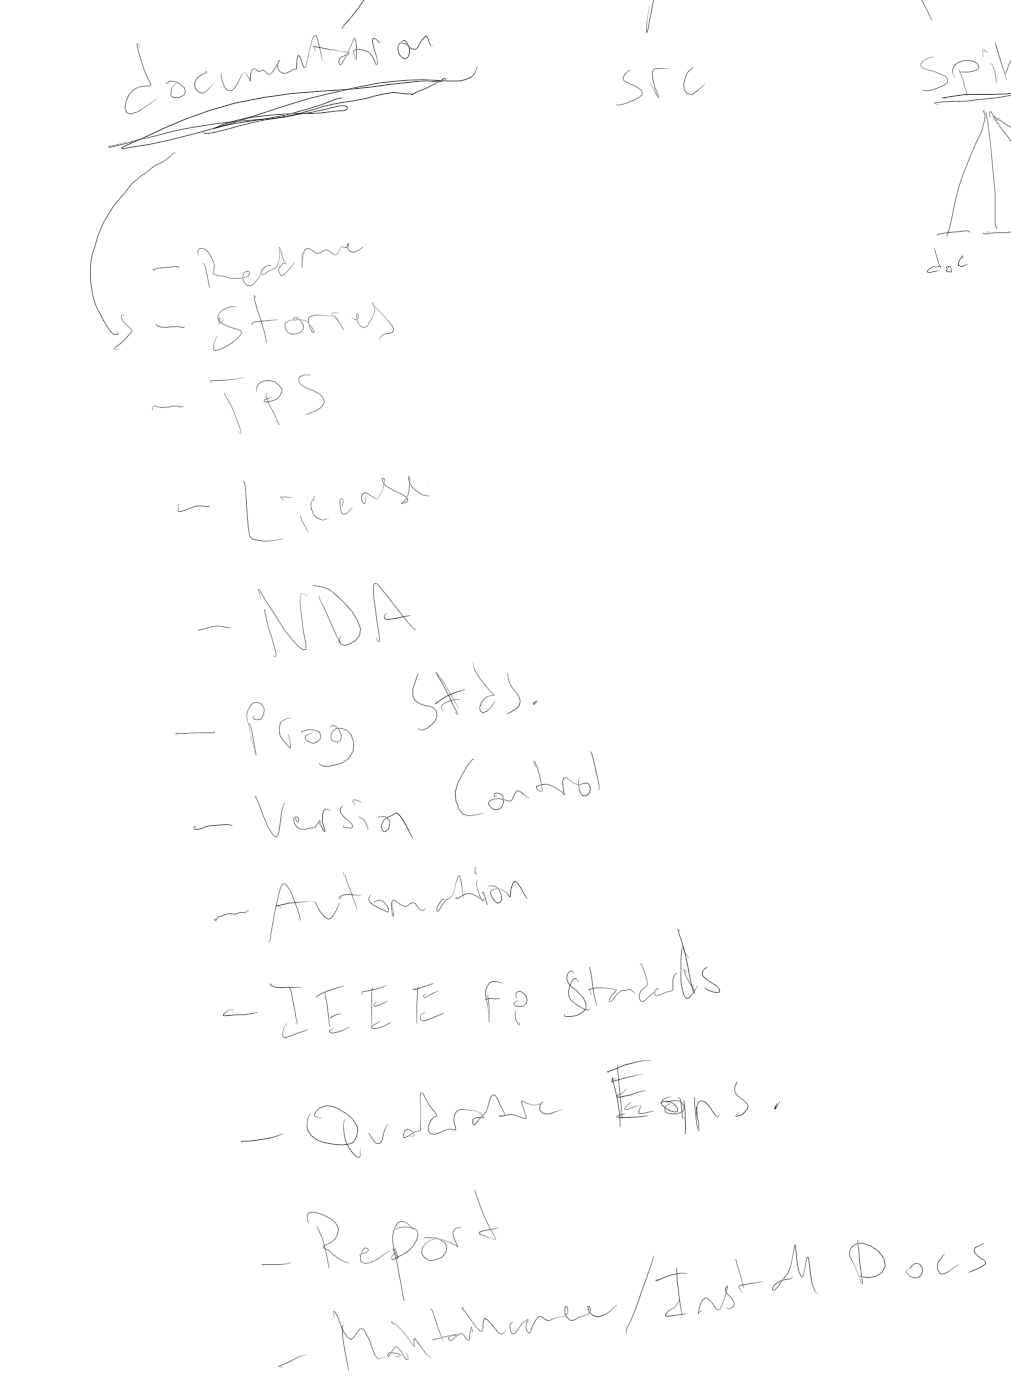 documentation
src
Spik
doc
- Readme
- Stories
- TPS
- License
- NDA
- Prog Stds.
- Version Control
- Automation
- IEEE FP Standards
- Quadratic Eqns.
- Report
- Maintainance/Install Docs